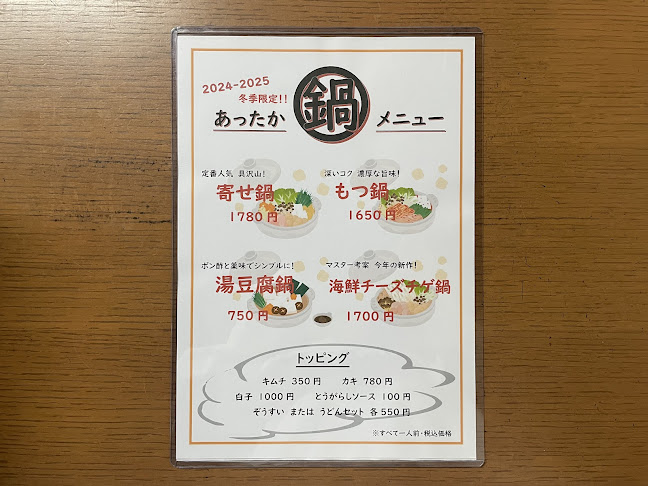 2024-2025
冬季限定!!
あったか 鍋 メニュー
定番人気 具沢山!
寄せ鍋
1780円
深いコク 濃厚な旨味!
もつ鍋
1650円
ポン酢と薬味でシンプルに!
湯豆腐鍋
750円
マスター考案 今年の新作!
海鮮チーズチゲ鍋
1700円
トッピング
キムチ 350円 カキ 780円
白子 1000円 とうがらしソース 100円
ぞうすい または うどんセット 各550円
※すべて一人前・税込価格